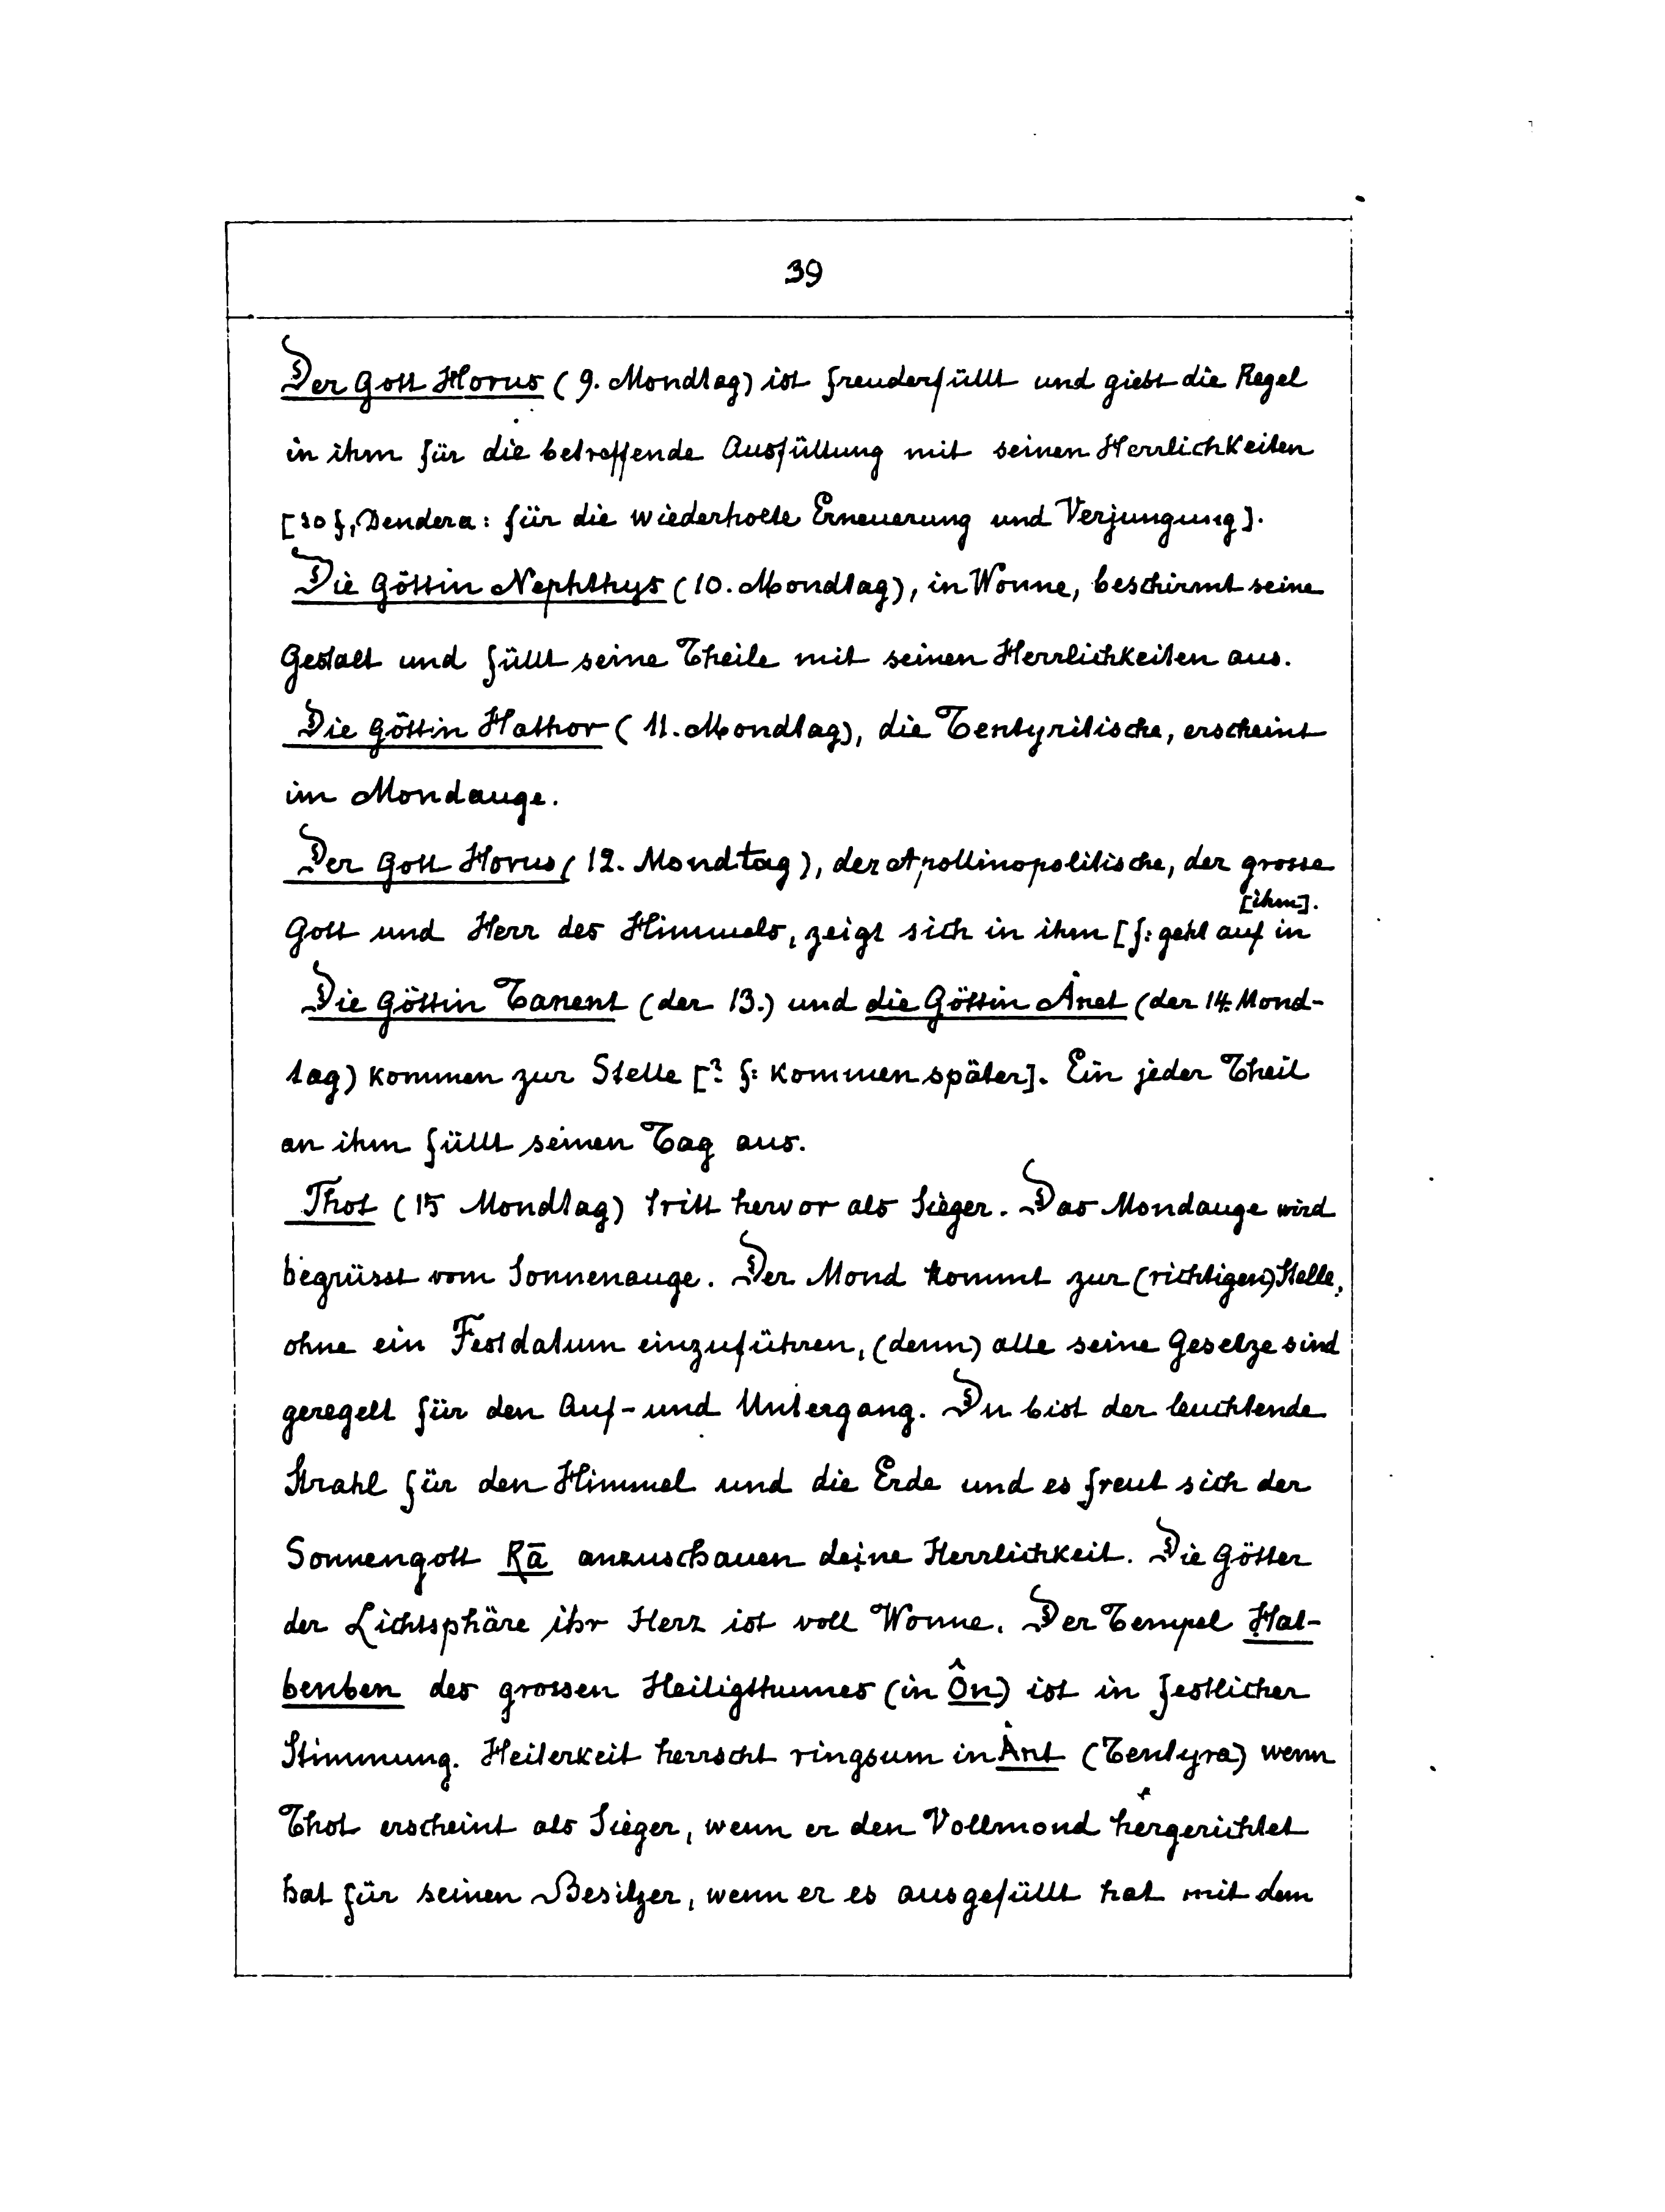 39
Der Gott Horus (9. Mondtag) ist freuderfüllt und giebt die Regel
in ihm für die betreffende Ausfüllung mit seinen Herrlichkeiten
[so f, Dendera: für die wiederholte Erneuerung und Verjungung].
Die Göttin Nephthys (10. Mondtag), in Wonne, beschirmt seine
Gestalt und füllt seine Theile mit seinen Herrlichkeiten aus.
Die Göttin Hathor (11. Mondtag), die Tentyritische, erscheint
im Mondauge.
Der Gott Horus (12. Mondtag), der Apollinopolitische, der grosse
Gott und Herr des Himmels, zeigt sich in ihm [f: geht auf in [ihm].
Die Göttin Tanent (der 13.) und die Göttin Ȧnet (der 14. Mond-
tag) kommen zur Stelle [? f: kommen später]. Ein jeder Theil
an ihm füllt seinen Tag aus.
Thot (15 Mondtag) tritt hervor als Sieger. Das Mondauge wird
begrüsst vom Sonnenauge. Der Mond kommt zur (richtigen) Stelle,
ohne ein Festdatum einzuführen, (denn) alle seine Gesetze sind
geregelt für den Auf- und Untergang. Du bist der leuchtende
Strahl für den Himmel und die Erde und es freut sich der
Sonnengott Rā anzuschauen deine Herrlichkeit. Die Götter
der Lichtsphäre ihr Herz ist voll Wonne. Der Tempel Hat-
benben des grossen Heiligthumes (in Ôn) ist in festlicher
Stimmung. Heiterkeit herrscht ringsum in Ȧnt (Tentyra) wenn
Thot erscheint als Sieger, wenn er den Vollmond hergerichtet
hat für seinen Besitzer, wenn er es ausgefüllt hat mit dem